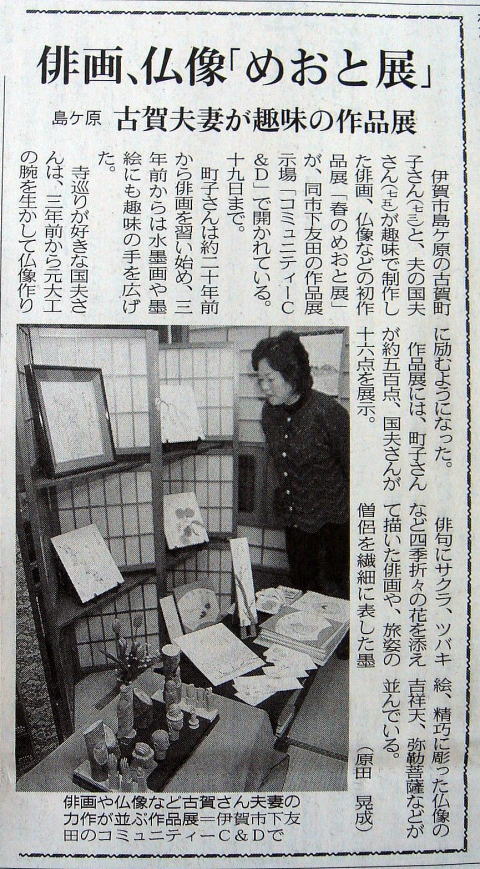 俳画、仏像「めおと展」
島ケ原 古賀夫妻が趣味の作品展
伊賀市島ケ原の古賀町
子さん(七三)と、夫の国夫
さん(七五)が趣味で制作し
た俳画、仏像などの初作
品展「春のめおと展」
が、同市下友田の作品展
示場「コミュニティーC
&D」で開かれている。
十九日まで。
町子さんは約二十年前
から俳画を習い始め、三
年前からは水墨画や墨
絵にも趣味の手を広げ
た。
寺巡りが好きな国夫さ
んは、三年前から元大工
の腕を生かして仏像作り
に励むようになった。
作品展には、町子さん
が約五百点、国夫さんが
十六点を展示。
俳句にサクラ、ツバキ
など四季折々の花を添え
て描いた俳画や、旅姿の
僧侶を繊細に表した墨
絵、精巧に彫った仏像の
吉祥天、弥勒菩薩などが
並んでいる。
(原田 晃成)
俳画や仏像など古賀さん夫妻の
力作が並ぶ作品展=伊賀市下友
田のコミュニティーC&Dで